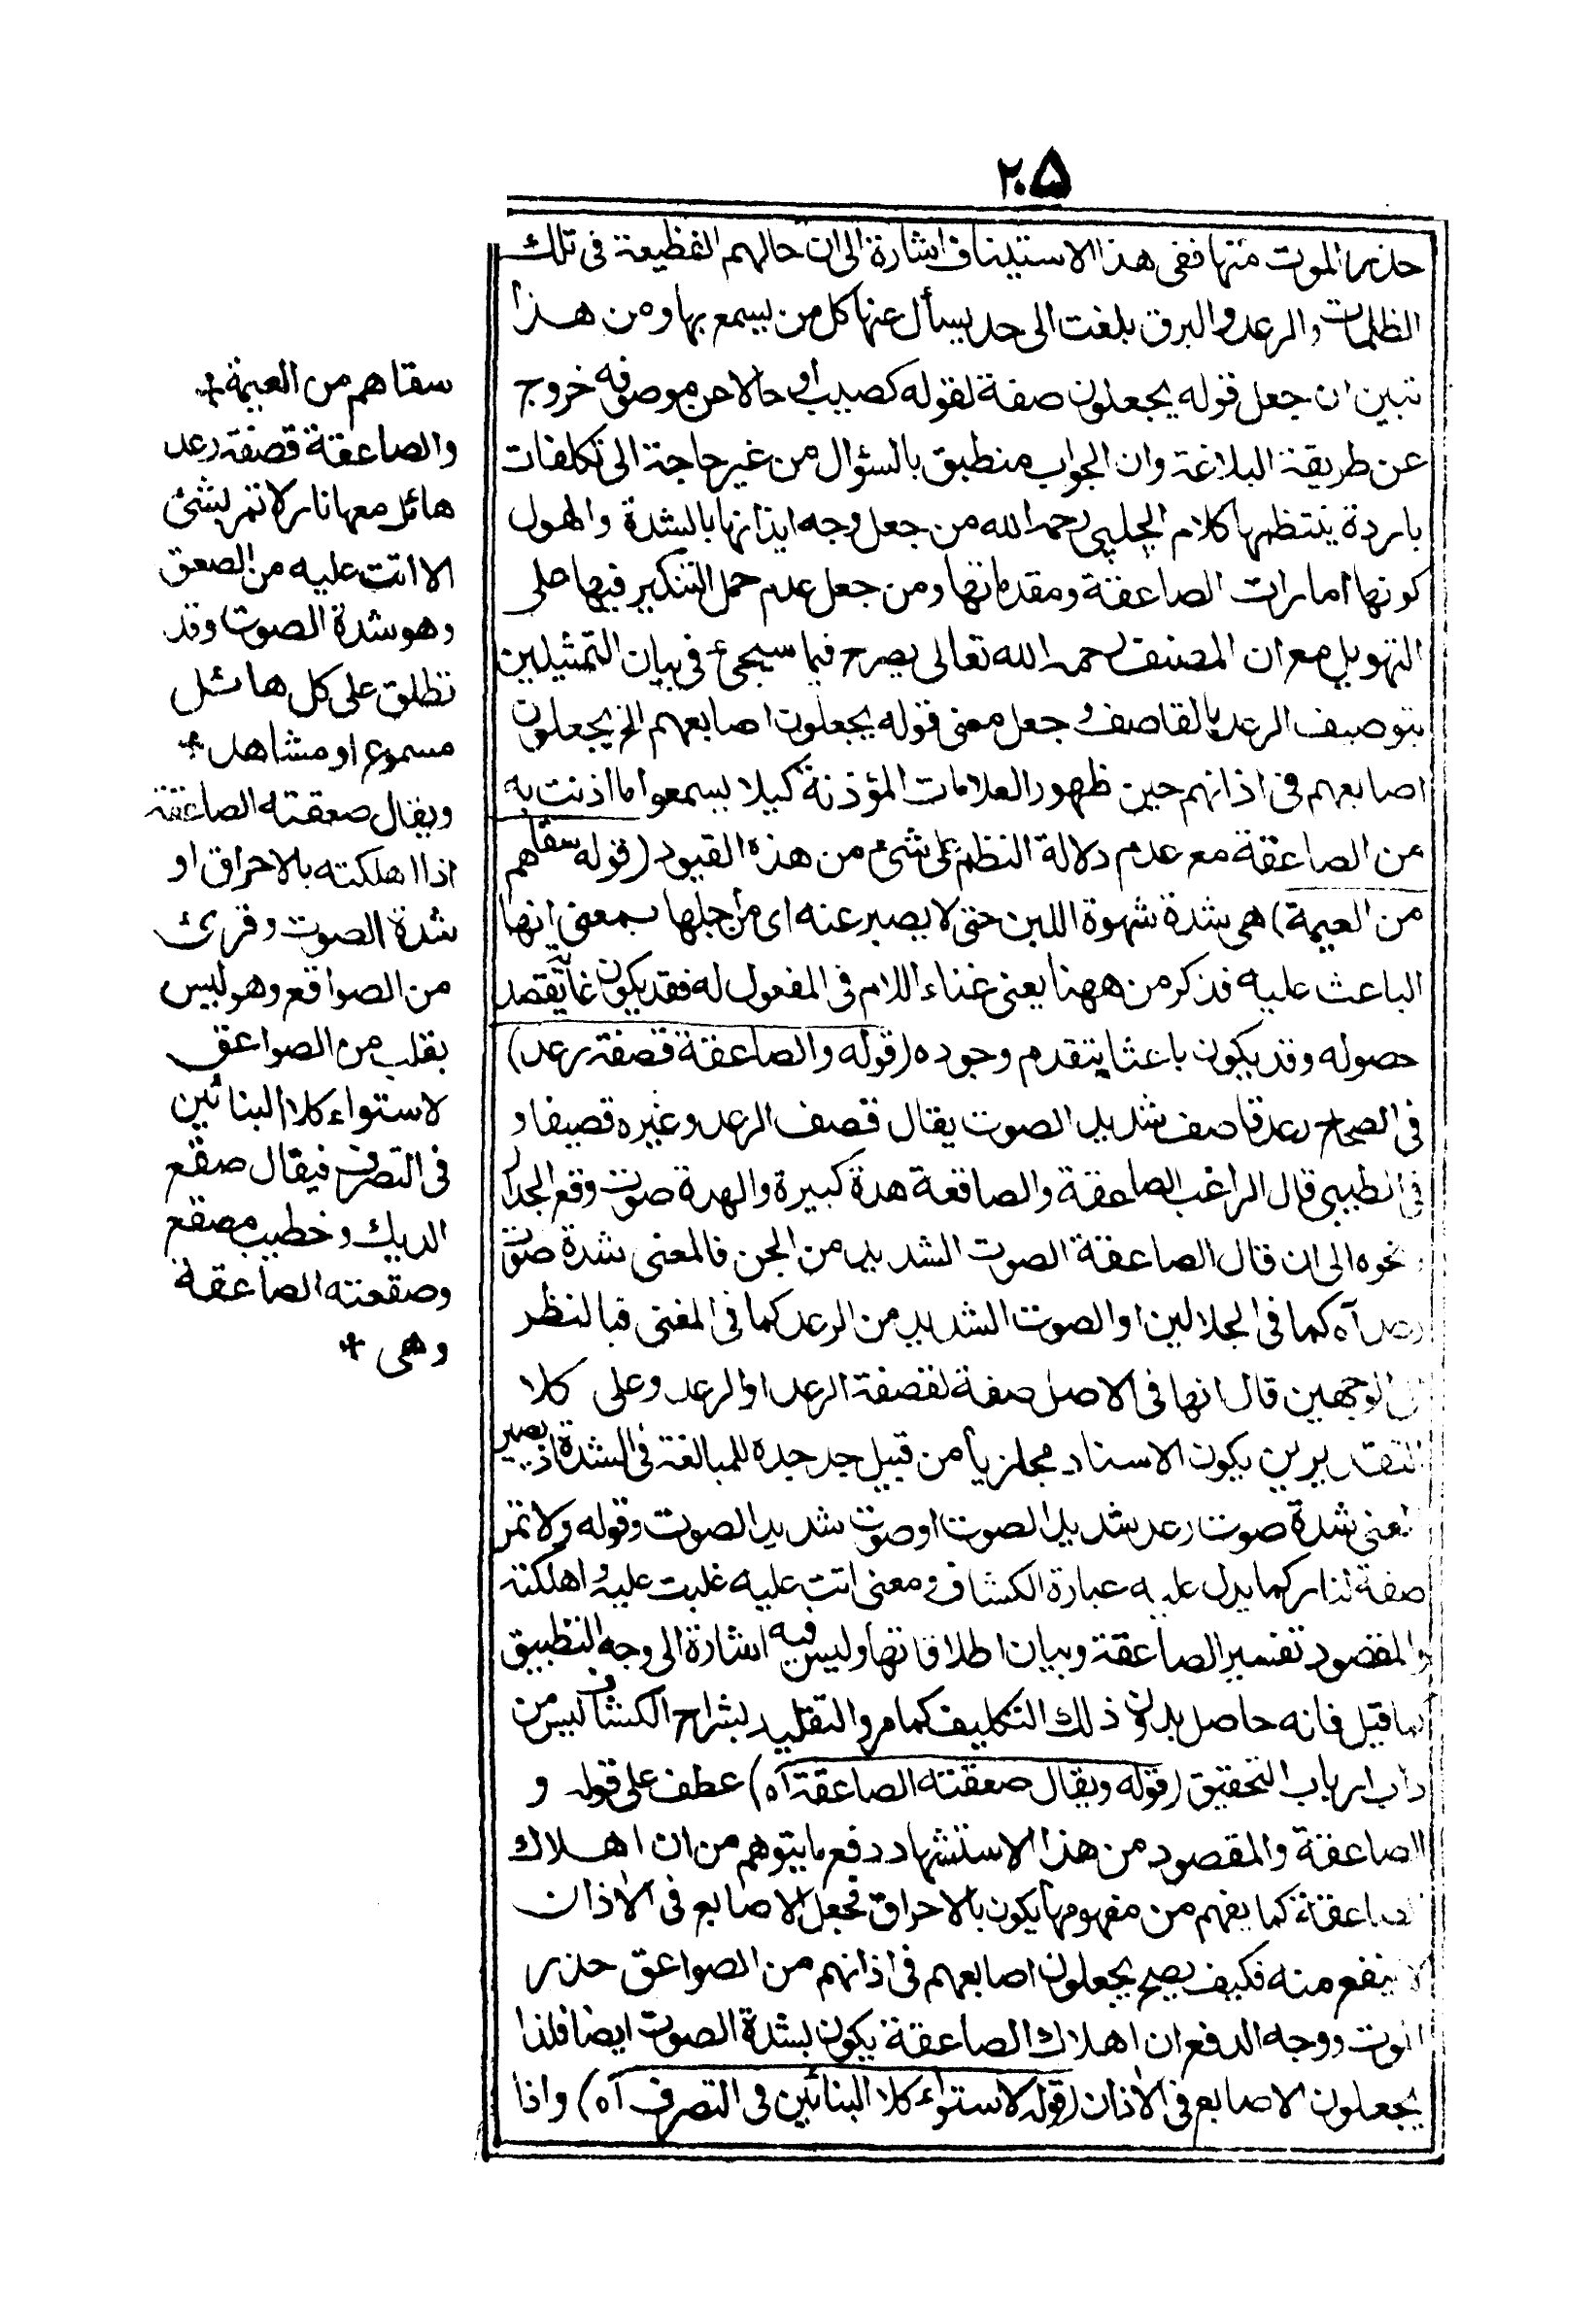 ٢٠٥
حذر الموت منها ففى هذا الاستيناف اشارة الى ان حالهم الفظيعة فى تلك
الظلمات والرعد والبرق بلغت الى حد يسأل عنها كل من يسمع بها ومن هذا
تبين ان جعل قوله يجعلون صفة لقوله كصيب او حالا من موصوفه خروج
عن طريقة البلاغة وان الجواب منطبق بالسؤال من غير حاجة الى تكلفات
باردة ينتظمها كلام الچلپى رحمه الله من جعل وجه ايذانها بالشدة والهول
كونها امارات الصاعقة ومقدماتها ومن جعل عدم حمل التنكير فيها على
التهويل مع ان المصنف رحمه الله تعالى يصرح فيما سيجئ فى بيان التمثيلين
بتوصيف الرعد بالقاصف و جعل معنى قوله يجعلون اصابعهم الخ يجعلون
اصابعهم فى اذانهم حين ظهور العلامات المؤذنة كيلا يسمعوا ما اذنت به
من الصاعقة مع عدم دلالة النظم على شئ من هذه القيود (قوله سقاهم
من العيمة) هى شدة شهوة اللبن حتى لا يصبر عنه اى من اجلها بمعنى انها
الباعث عليه فذكر من ههنا يعنى غناء اللام فى المفعول له فقد يكون غاية يقصد
حصوله وقد يكون باعثا يتقدم وجوده (قوله والصاعقة قصفة رعد)
فى الصحاح رعد قاصف شديد الصوت يقال قصف الرعد وغيره قصيفا و
فى الطيبى قال الراغب الصاعقة والصاقعة هدة كبيرة والهدة صوت وقع الجدار
و نحوه الى ان قال الصاعقة الصوت الشديد من الجن فالمعنى شدة صوت
رعد آه كما فى الجلالين او الصوت الشديد من الرعد كما فى المغنى فبالنظر
الى الوجهين قال انها فى الاصل صفة لقصفة الرعد او الرعد وعلى كلا
التقديرين يكون الاسناد مجازيا من قبيل جد جده للمبالغة فى الشدة اذ يصير
المعنى شدة صوت رعد شديد الصوت او صوت شديد الصوت وقوله ولا تمر
صفة لنار كما يدل عليه عبارة الكشاف ومعنى اتت عليه غلبت عليه و اهلكته
والمقصود تفسير الصاعقة وبيان اطلاقاتها وليس فيه اشارة الى وجه التطبيق
بما قبل فانه حاصل بدون ذلك التكليف كما مر والتقليد لشراح الكشاف ليس من
داب ارباب التحقيق (قوله ويقال صعقته الصاعقة آه) عطف على قوله و
الصاعقة والمقصود من هذا الاستشهاد دفع ما يتوهم من ان اهلاك
الصاعقة كما يفهم من مفهومها يكون بالاحراق فجعل الاصابع فى الاذان
لا ينفع منه فكيف يصح يجعلون اصابعهم فى اذانهم من الصواعق حذر
الموت ووجه الدفع ان اهلاك الصاعقة يكون بشدة الصوت ايضا فلذا
يجعلون الاصابع فى الاذان (قوله لاستواء كلا البنائين فى التصرف آه) واذا
سقاهم من العيمة *
والصاعقة قصفة رعد
هائل معها نار لا تمر بشئ
الا اتت عليه من الصعق
وهو شدة الصوت وقد
تطلق على كل هائل
مسموع او مشاهد *
ويقال صعقته الصاعقة
اذا اهلكته بالاحراق او
شدة الصوت وقرئ
من الصواقع وهو ليس
بقلب من الصواعق
لاستواء كلا البنائين
فى التصرف فيقال صقع
الديك وخطيب مصقع
وصقعته الصاعقة
وهى *